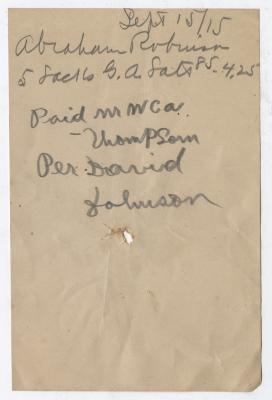 Sept 15/15
Abraham Robinson
5 Sacks G. A. Salt 85 - 4.25
Paid M W Ca
- Thompson
Per David
Johnson